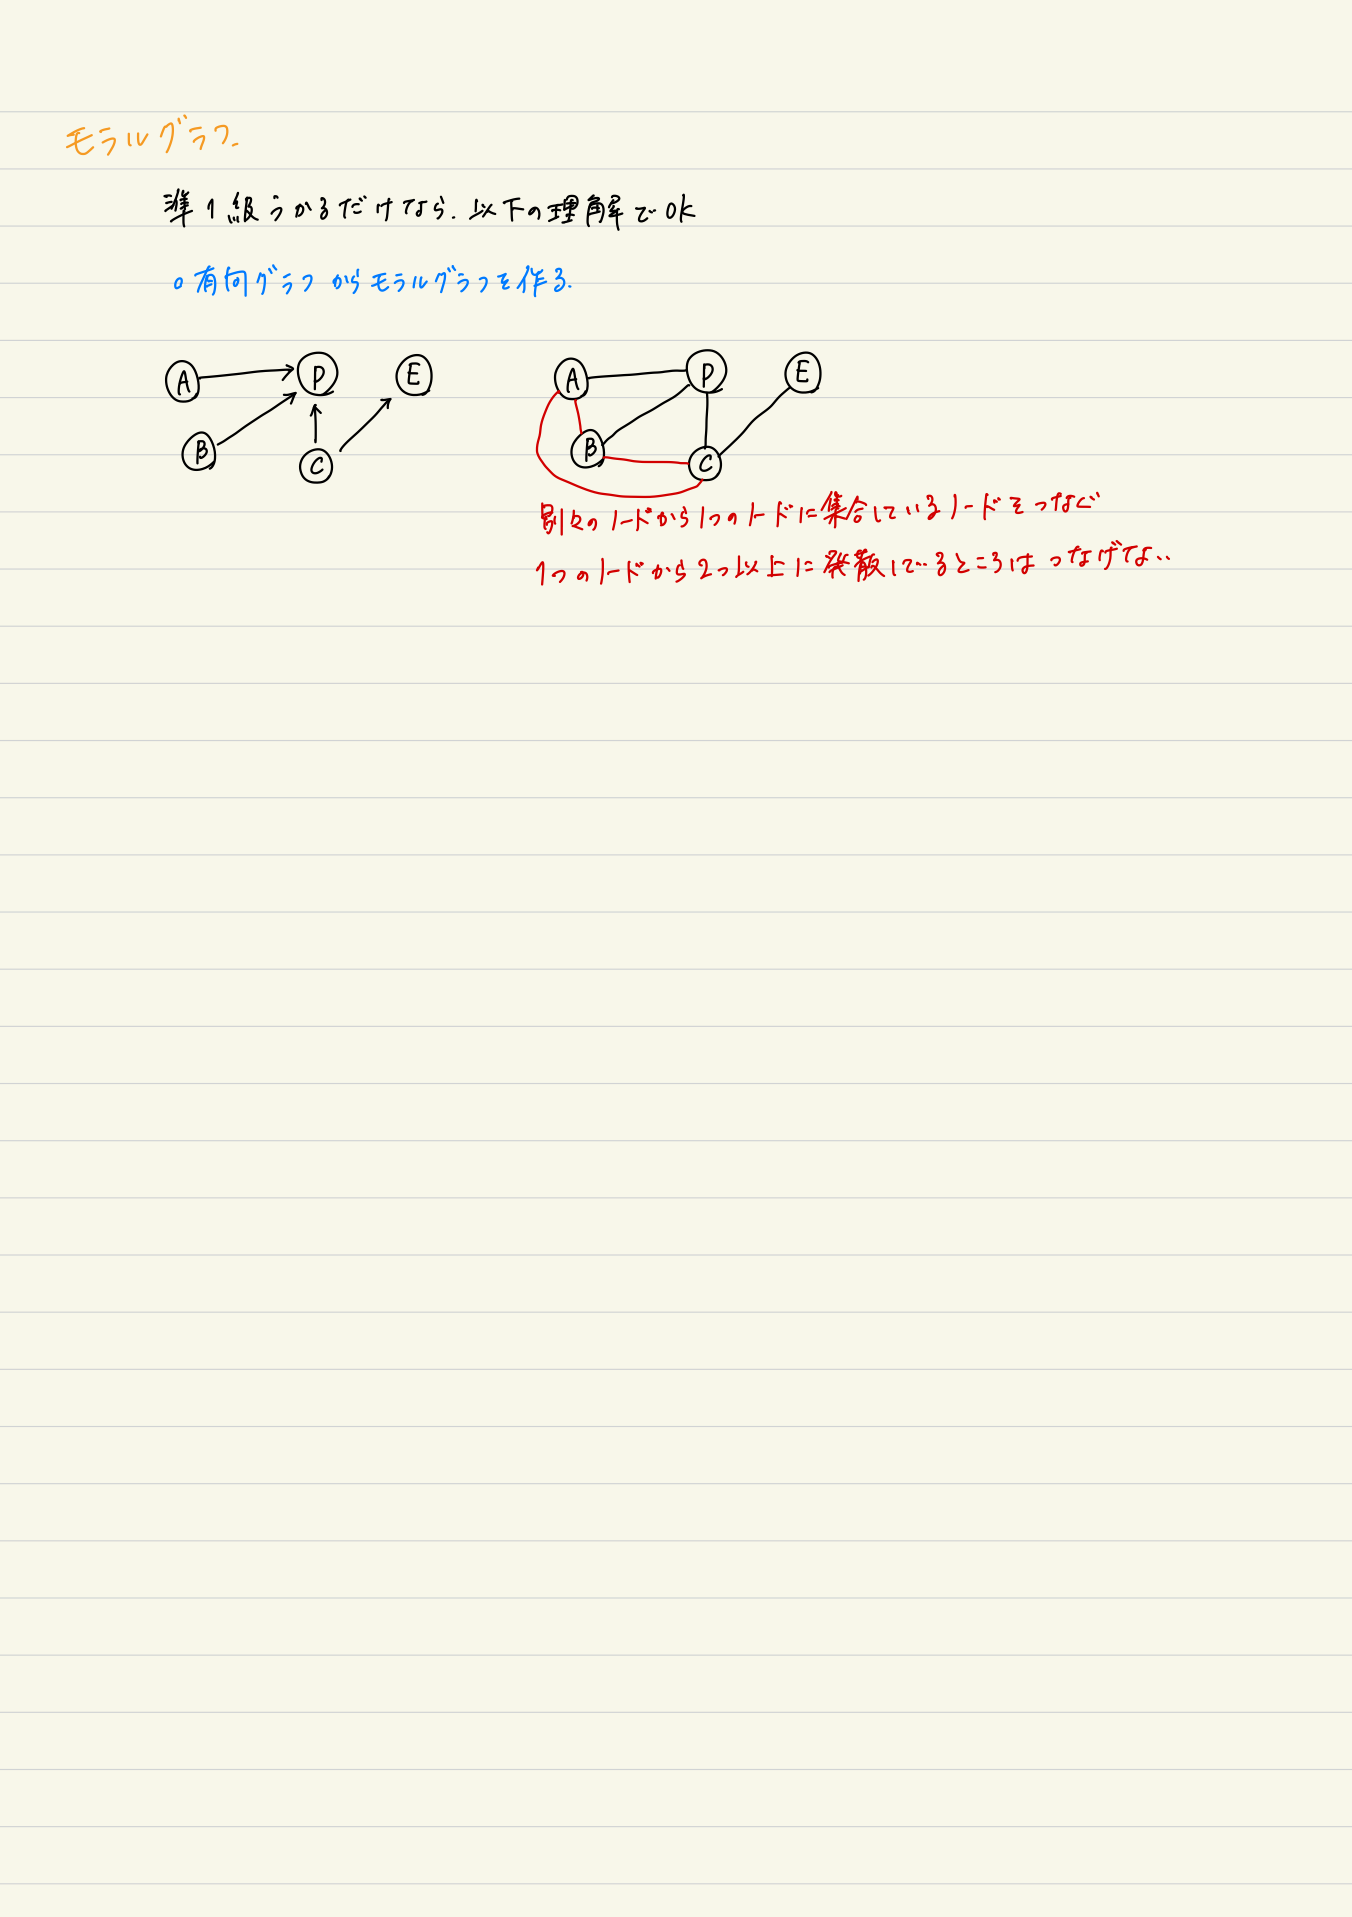 モラルグラフ.
準1級うかるだけなら.以下の理解でOK
○有向グラフからモラルグラフを作る.
A P E A P E
B C B C
別々のノードから1つのノードに集合しているノードをつなぐ
1つのノードから2つ以上に発散しているところはつなげない